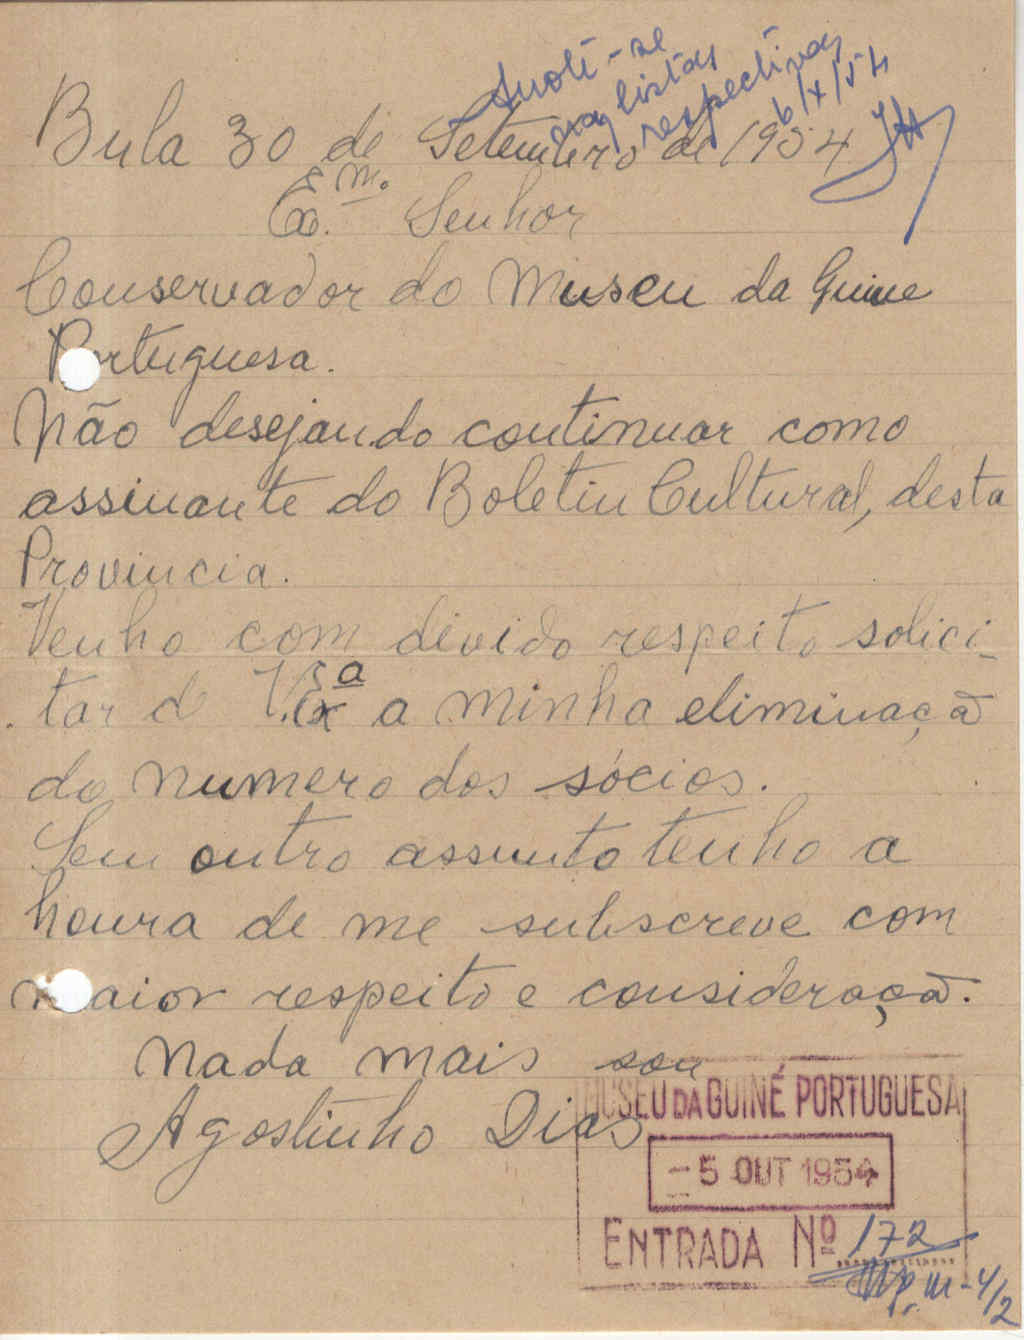 Anote-se
nas listas
respectivas
6/X/54
Bula 30 de Setembro de 1954
Ex.mo Senhor
Conservador do Museu da Guine
Portuguesa.
Não desejando continuar como
assinante do Boletin Cultural, desta
Provincia.
Venho com devido respeito solici-
tar d V. Exª a minha eliminaçã
do numero dos sócios.
Sem outro assunto tenho a
honra de me subscreve com
maior respeito e consideraçã.
Nada mais sou
Agostinho Dias
MUSEU DA GUINÉ PORTUGUESA
-5 OUT 1954
ENTRADA Nº 172